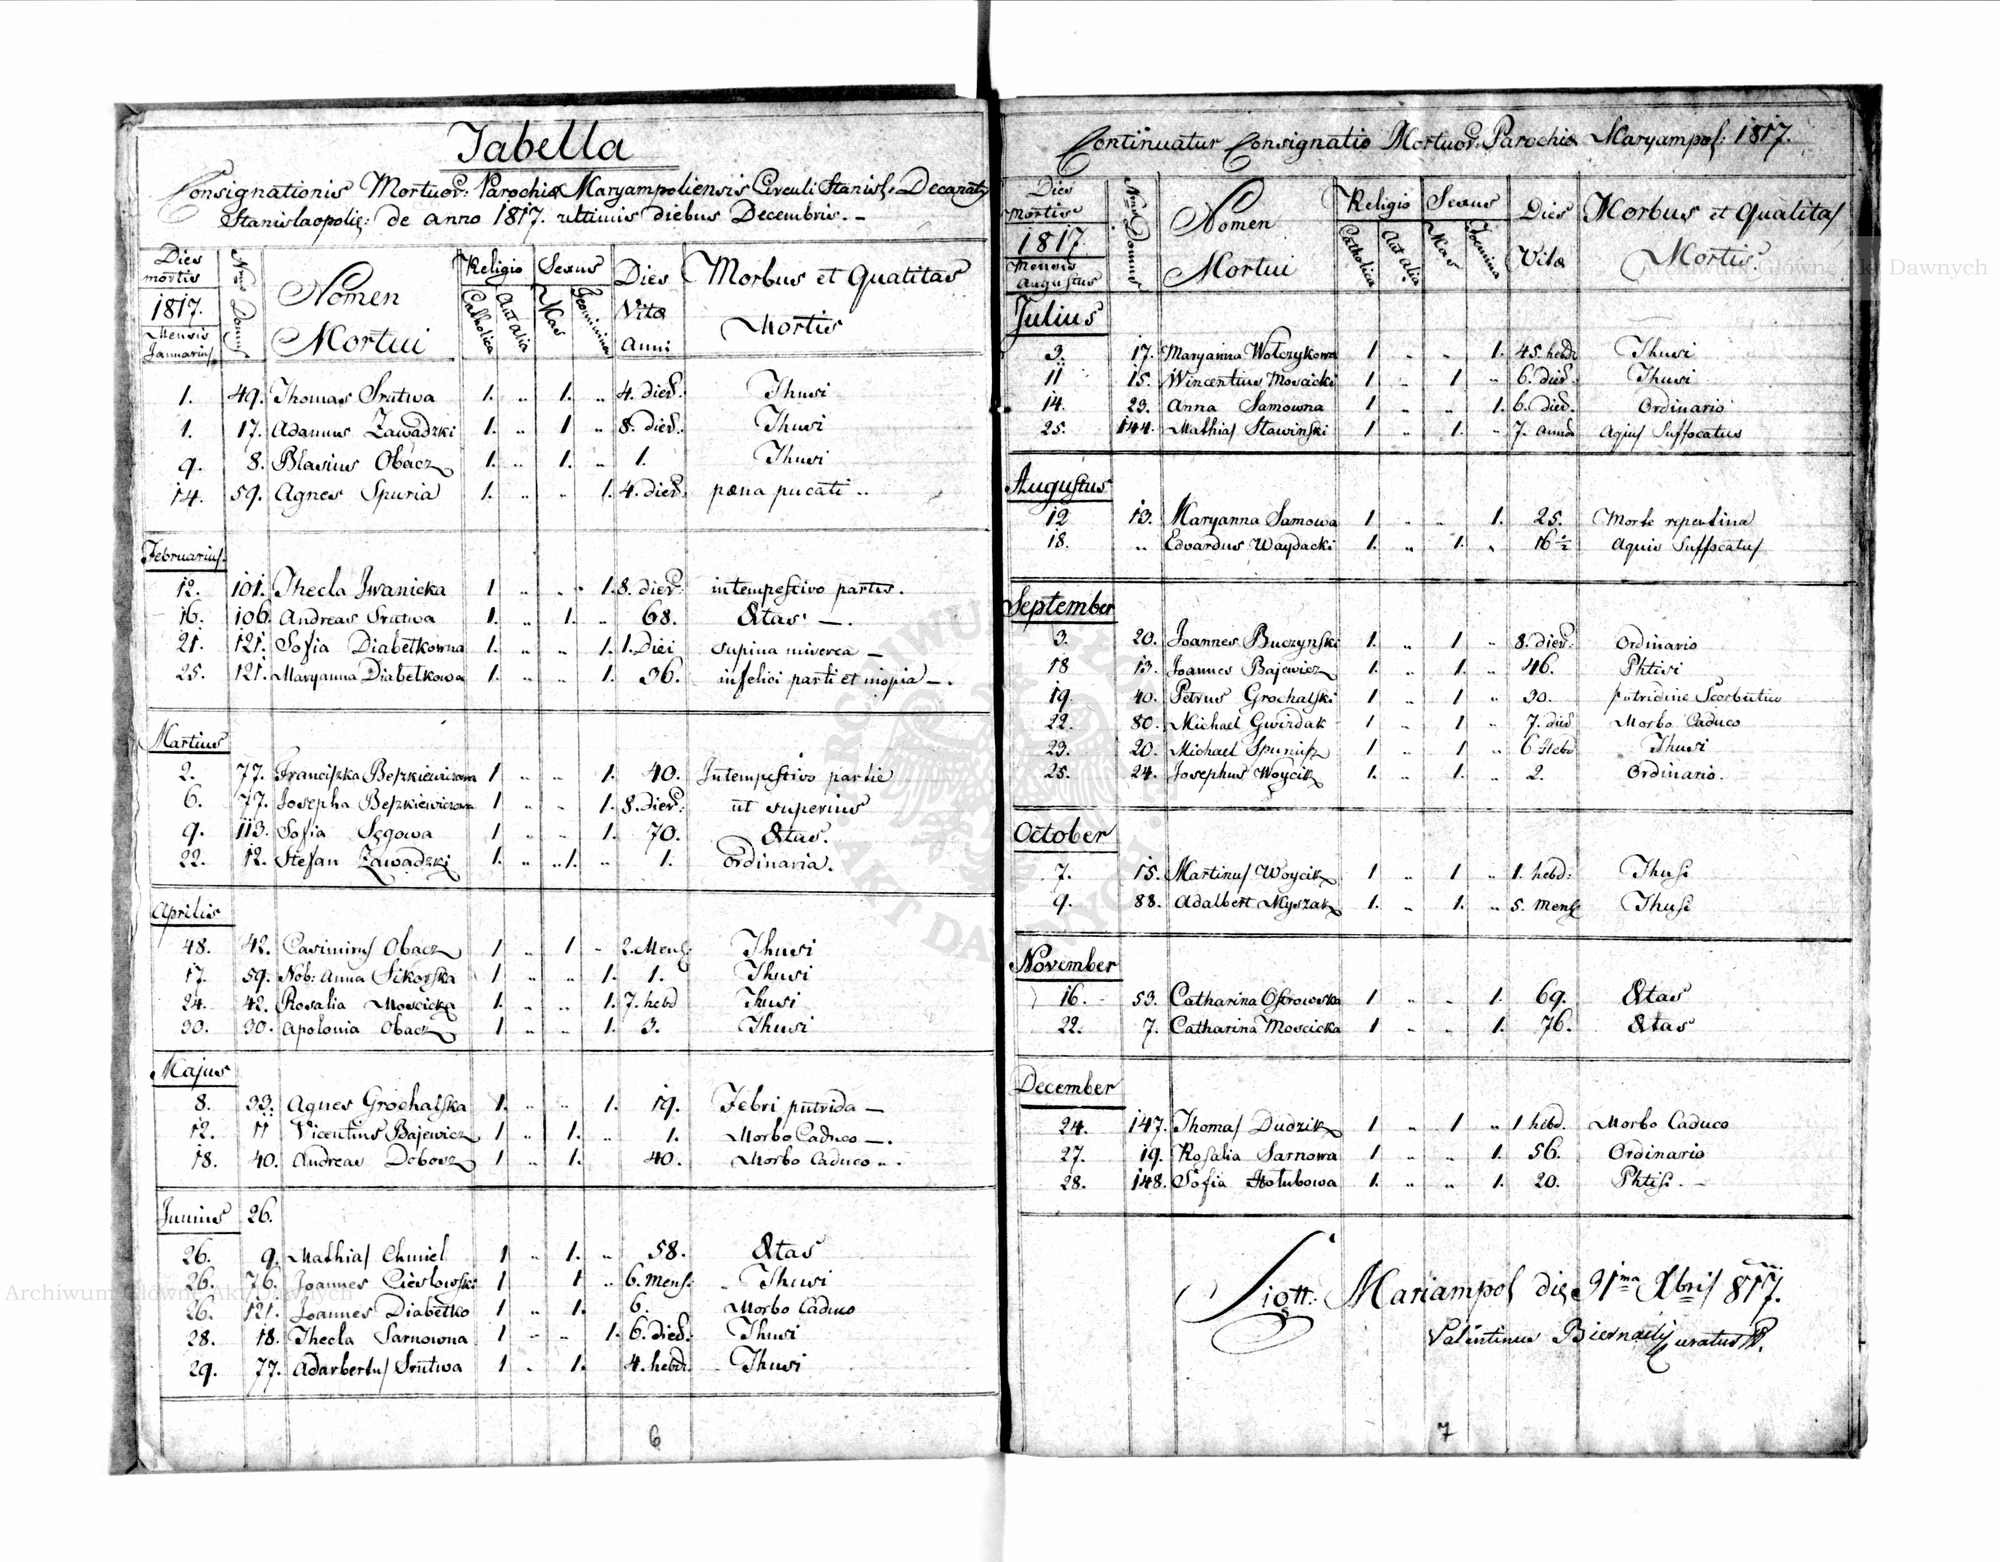 Tabella
Consignationis Mortuor: Parochiæ Maryampoliensis Circuli Stanisl: Decanat9
Stanislaopolis: de anno 1817. ultimis diebus Decembris. –
Dies mortis 1817. Mensis Januarius
Nrus Domus
Nomen Mortui
Religio Catholica Aut alia
Sexus Mas Foeminina
Dies Vitæ Anni
Morbus et Qualitas Mortis
1. 49. Thomas Srutwa 1. .. 1. .. 4. dier. Thusi
1. 17. Adamus Zawadzki 1. .. 1 .. 8. dier. Thusi
9. 8. Blasius Obacz 1. .. 1. .. 1. Thusi
14. 59. Agnes Spuria 1. .. .. 1. 4. dier. pæna pucati ..
Februarius.
12. 101. Thecla Jwanicka 1 .. .. 1. 8. dier: intempestivo partus.
16. 106. Andreas Srutwa 1. .. 1. .. 68. Ætas –.
21. 121. Sofia Diabełkowna 1. .. .. 1. 1. Diei supina miserea –
25. 121. Maryanna Diabełkowa 1. .. .. 1. 36. infelici parti et inopia –.
Martius
2. 77. Franciszka Beszkiewiczowa 1 .. .. 1. 40. Intempestivo partie
6. 77. Josepha Beszkiewiczowa 1 .. .. 1. 8. dier: ut superius
9. 113. Sofia Sęgowa 1 .. .. 1. 70. Ætas.
22. 12. Stefan Zawadzki 1. .. ..1. .. 1. ordinaria.
Aprilis
48. 42. Casimirus Obacz 1 .. 1 .. 2. Mens: Thusi
17. 59. Nob: Anna Sikorska 1 .. .. 1. 1. Thusi
24. 42. Rosalia Moscicka 1. .. .. 1. 7. hebd Thusi
30. 30. Apolonia Obacz 1 .. .. 1. 3. Thusi
Majus
8. 33. Agnes Grochalska 1. .. .. 1. 19. Febri putrida –
12. 11 Vicentius Bajewicz 1 .. 1. 1. Morbo Caduco –.
18. 40. Andreas Dobosz 1 .. 1. 40. Morbo Caduco ..
Junius 26.
26. 9. Mathias Chmiel 1 .. 1. .. 58. Ætas
26. 76. Joannes Cieslowski 1 1 .. 6. Mens: Thusi
26. 121. Joannes Diabełko 1 .. 1. 6. Morbo Caduco
28. 18. Thecla Sarnowna 1 .. .. 1. 6. dier. Thusi
29. 77. Adarbertus Srutwa 1 .. 1. 4. hebd: Thusi
6
Continuatur Consignatio Mortuor: Parochiæ Maryampol: 1817.
Dies mortis 1817 Mensis Augustus
Nrus Domus
Nomen Mortui
Religio Catholica Aut alia
Sexus Mas Foemina
Dies Vitæ
Morbus et Qualitas Mortis
Julius
3. 17. Maryanna Wołczykowa 1 .. .. 1. 45. hebd: Thusi
11 15. Wincentius Moscicki 1 .. 1 .. 6. dier. Thusi
14. 23. Anna Samowna 1 .. .. 1. 6. dier. Ordinario
25. 144. Mathias Stawinski 1 .. 1. .. 7. annor Aqius Suffocatus
Augustus
12 13. Maryanna Samowa 1 .. .. 1. 25. Morte repentina
18. .. Edvardus Waydacki 1. .. 1. .. 16½ Aquis Suffocatus
September
3. 20. Joannes Buczynski 1. .. 1 .. 8. dier: Ordinario
18 13. Joannes Bajewicz 1. .. 1. .. 46. Phtisi
19. 40. Petrus Grochalski 1 .. 1 .. 30. putridine Scorbutico
22. 80. Michael Gwizdak 1 .. 1 .. 7. dier Morbo Caduco
23. 20. Michael Spurius 1 .. 1 .. 6 Hebd Thusi
25. 24. Josephus Woycik 1. .. 1. .. 2. Ordinario.
October
7. 15. Martinus Woycik 1 .. 1 .. 1. hebd: Thusi
9. 88. Adalbert Myszak 1. .. 1. .. 5. Mens Thusi
November
16. 53. Catharina Ostrowska 1 .. .. 1. 69. Ætas
22. 7. Catharina Moscicka 1 .. .. 1. 76. Ætas
December
24. 147. Thomas Dudzik 1 .. 1 .. 1 hebd. Morbo Caduco
27. 19. Rosalia Sarnowa 1 .. .. 1. 56. Ordinario
28. 148. Sofia Hołubowa 1. .. .. 1. 20. Phtisi. –
Mariampol die 31ma Xbris 817.
Valentinus Curatus
7
Archiwum Główne Akt Dawnych
Archiwum Główne Akt Dawnych
ARCHIWUM GŁÓWNE AKT DAWNYCH